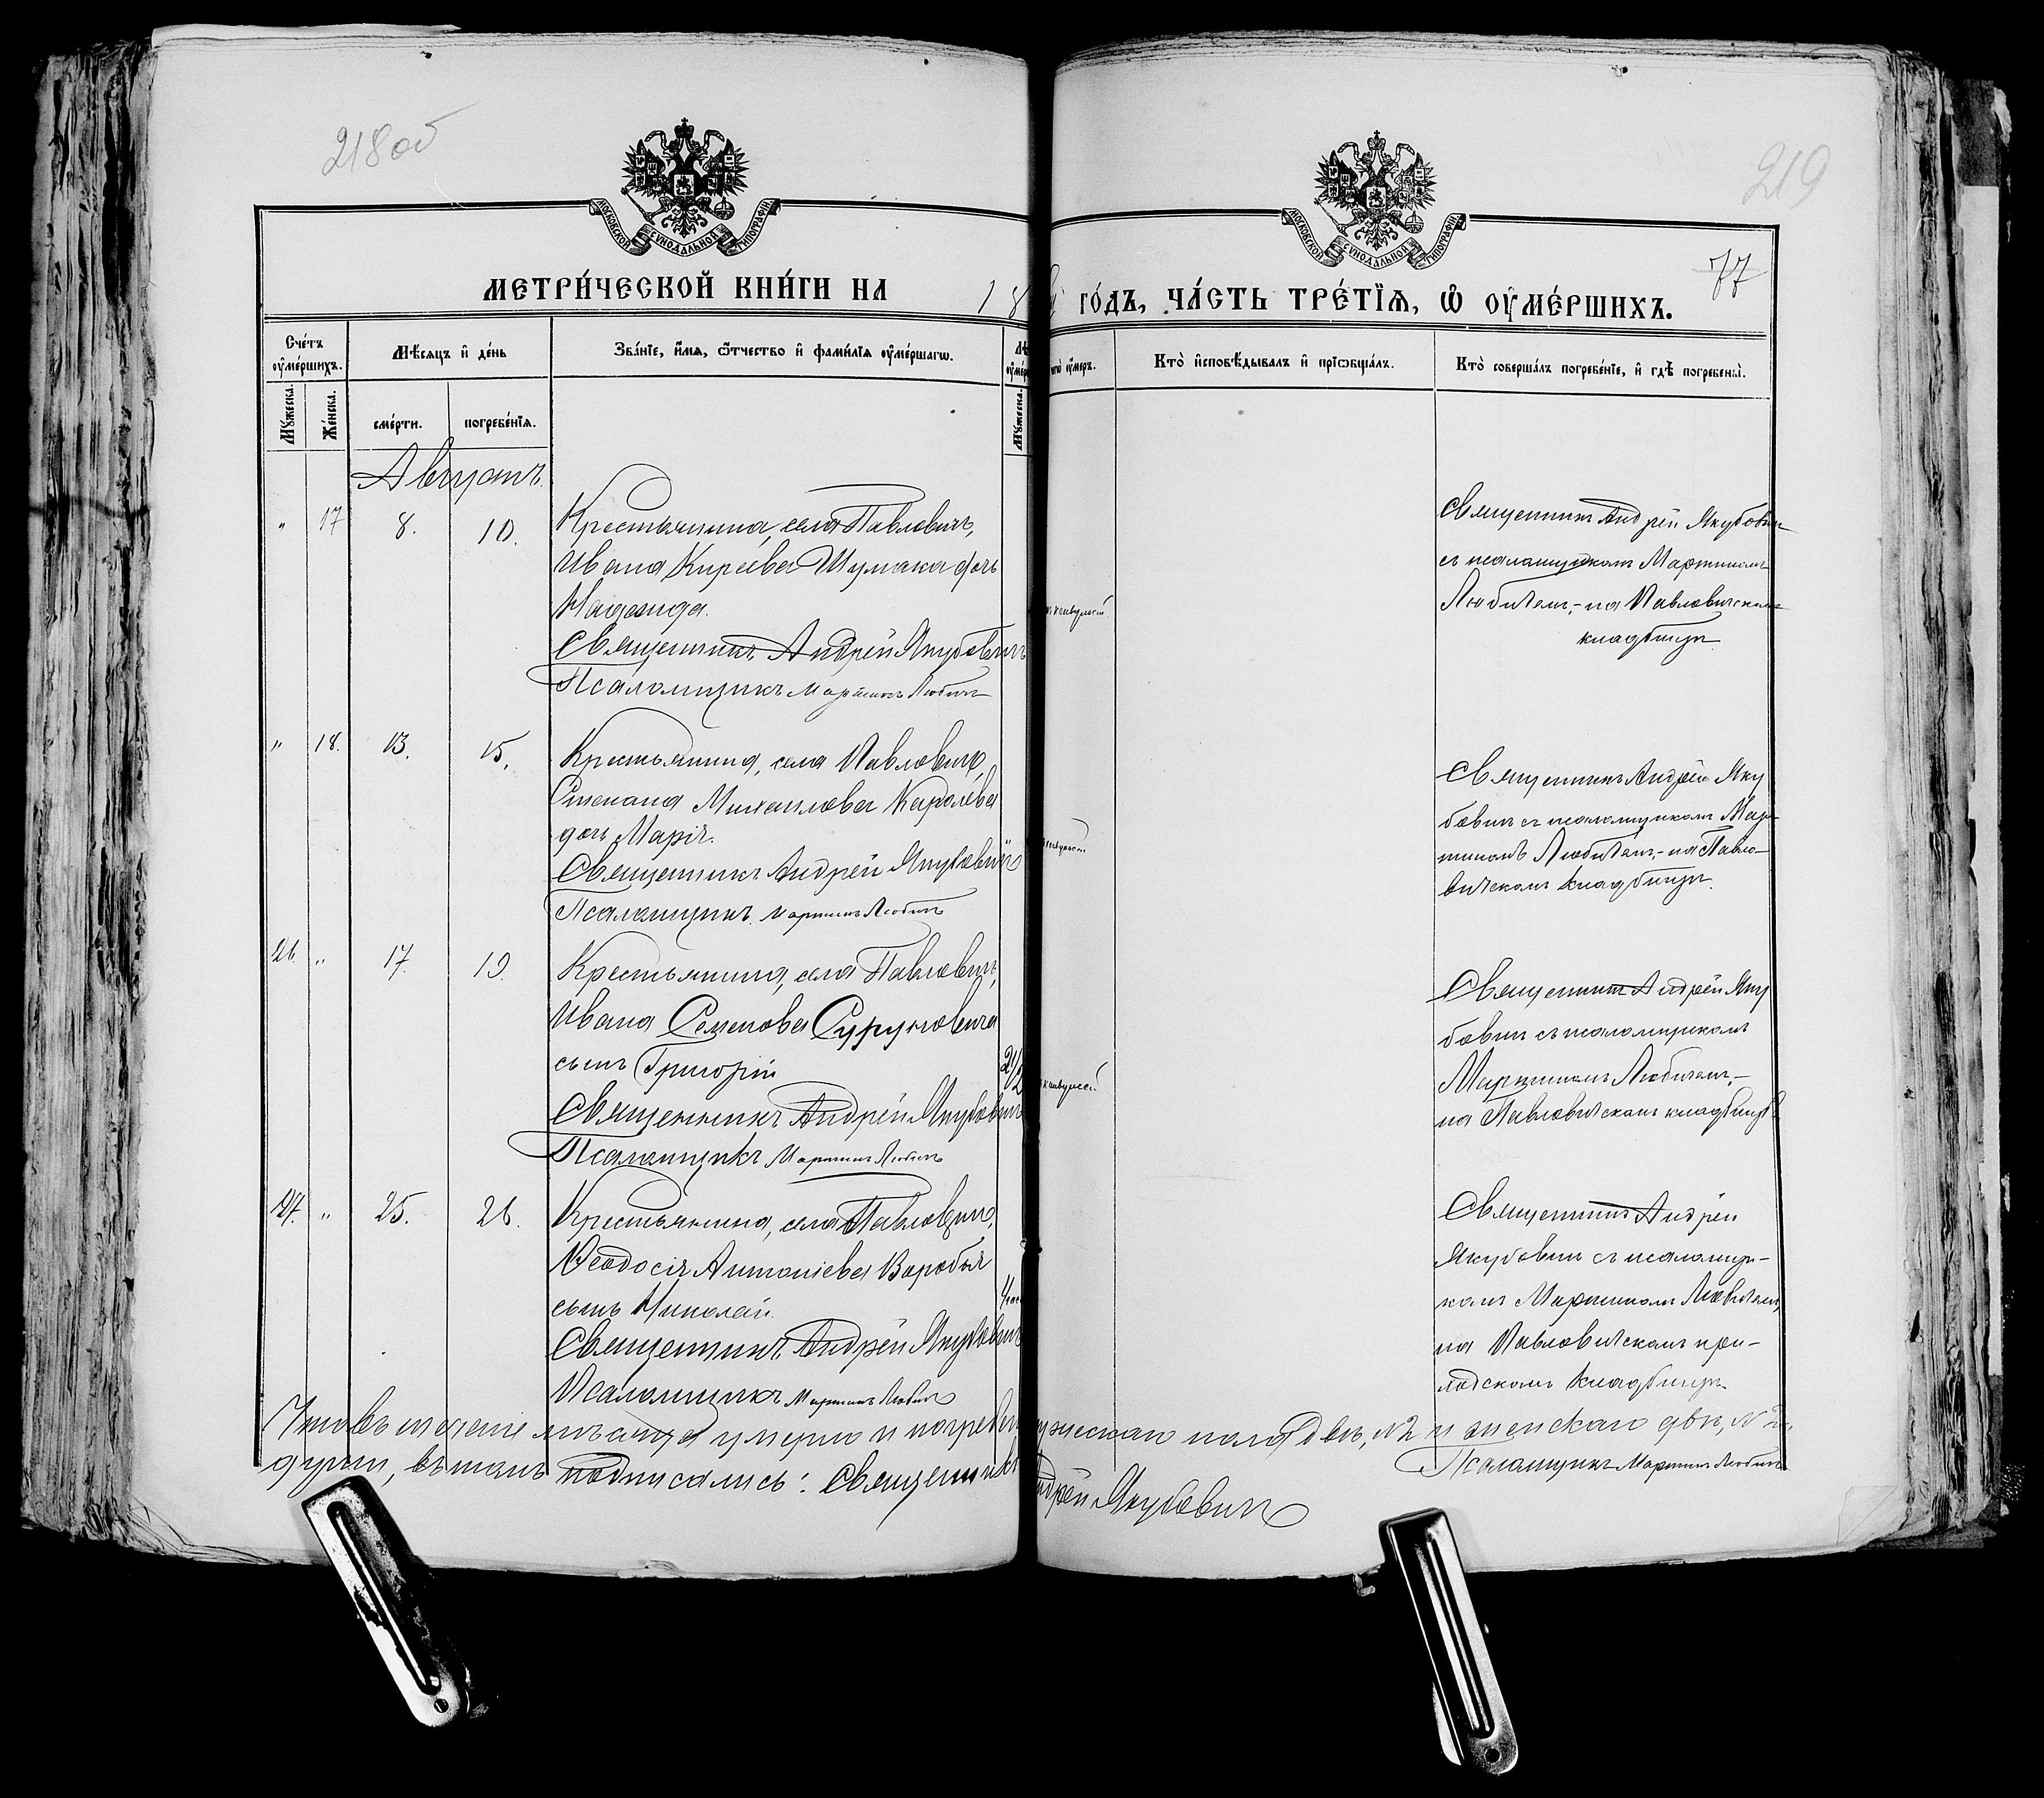 218 об
219
МОСКОВСКОЙ СѴНОДАЛЬНОЙ ТИПОГРАФІИ
МОСКОВСКОЙ СѴНОДАЛЬНОЙ ТИПОГРАФІИ
77
МЕТРИ́ЧЕСКОЙ КНИ́ГИ НА 18 ГО́ДЪ, ЧА́СТЬ ТРЕ́ТЇѦ, Ѡ҆ ОУ҆МЕ́РШИХЪ.
Сче́тъ оу҆ме́ршихъ.
Мѣ́сяцъ и҆ де́нь
Зва́нїе, и҆́мѧ, ѻ҆́тчество и҆ фами́лїѧ оу҆ме́ршагѡ.
оу҆́меръ.
Кто̀ и҆сповѣ́дывалъ и҆ прїѡбща́лъ.
Кто̀ соверша́лъ погребе́нїе, и҆ гдѣ̀ погребены̀.
Мꙋ́жеска.
Же́нска.
сме́рти.
погребе́нїѧ.
Мꙋ́жеска.
Августъ.
" 17 8. 10.
Крестьянина, села Павловичъ,
Ивана Киреева Шумака дочь
Надежда.
Священникъ Андрей Якубовичъ
Псаломщикъ Мартинъ Любичъ
Священникъ Андрей Якубовичъ
съ псаломщикомъ Мартиномъ
Любичемъ,- на Павловичскомъ
кладбищѣ.
" 18. 13. 15.
Крестьянина, села Павловичъ,
Степана Михаилова Королева
дочь Марія.
Священникъ Андрей Якубовичъ
Псаломщикъ Мартинъ Любичъ
Священникъ Андрей Яку
бовичъ съ псаломщикомъ Мар-
тиномъ Любичемъ,- на Павло-
вичскомъ кладбищѣ.
26. " 17. 19.
Крестьянина, села Павловичъ,
Ивана Семенова Супруновича
сынъ Григорій
2 1/2
Священникъ Андрей Якубовичъ
Псаломщикъ Мартинъ Любичъ
Священникъ Андрей Яку
бовичъ съ псаломщикомъ
Мартиномъ Любичемъ,-
на Павловичскомъ кладбищѣ
27. " 25. 26.
Крестьянина, села Павловичъ,
Ѳеодосія Антоніева Воробья
сынъ Николай.
Священникъ Андрей Якубовичъ
Псаломщикъ Мартинъ Любичъ
Священникъ Андрей
Якубовичъ съ псаломщи-
комъ Мартиномъ Любичемъ,
на Павловичскомъ при-
ходскомъ кладбищѣ
Что въ теченіе мѣсяца умерло и погреб мужескаго пола двѣ, № 2 и женскаго двѣ, № 2.
души, въ томъ подписались: Священникъ Андрей Якубовичъ
Псаломщикъ Мартинъ Любичъ